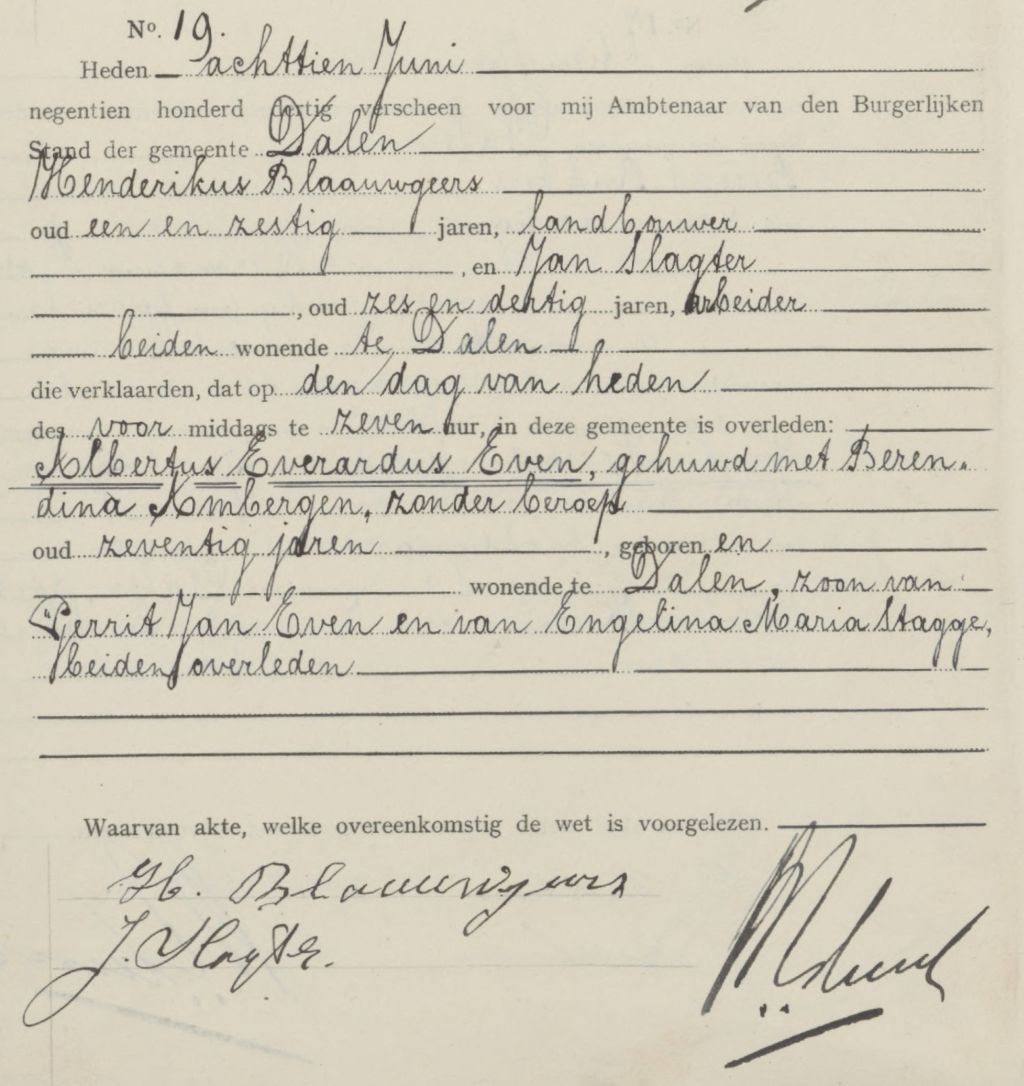 Nº. 19.
Heden achttien Juni
negentien honderd dertig verscheen voor mij Ambtenaar van den Burgerlijken
Stand der gemeente Dalen
Henderikus Blaauwgeers
oud een en zestig jaren, landbouwer
, en Jan Slagter
, oud zes en dertig jaren, arbeider
beiden wonende te Dalen
die verklaarden, dat op den dag van heden
des voor middags te zeven uur, in deze gemeente is overleden:
Albertus Everardus Even, gehuwd met Beren-
dina Ambergen, zonder beroep
oud zeventig jaren, geboren en
wonende te Dalen, zoon van
Gerrit Jan Even en van Engelina Maria Stagge,
beiden overleden
Waarvan akte, welke overeenkomstig de wet is voorgelezen.
H. Blaauwgeers
J. Slagter.